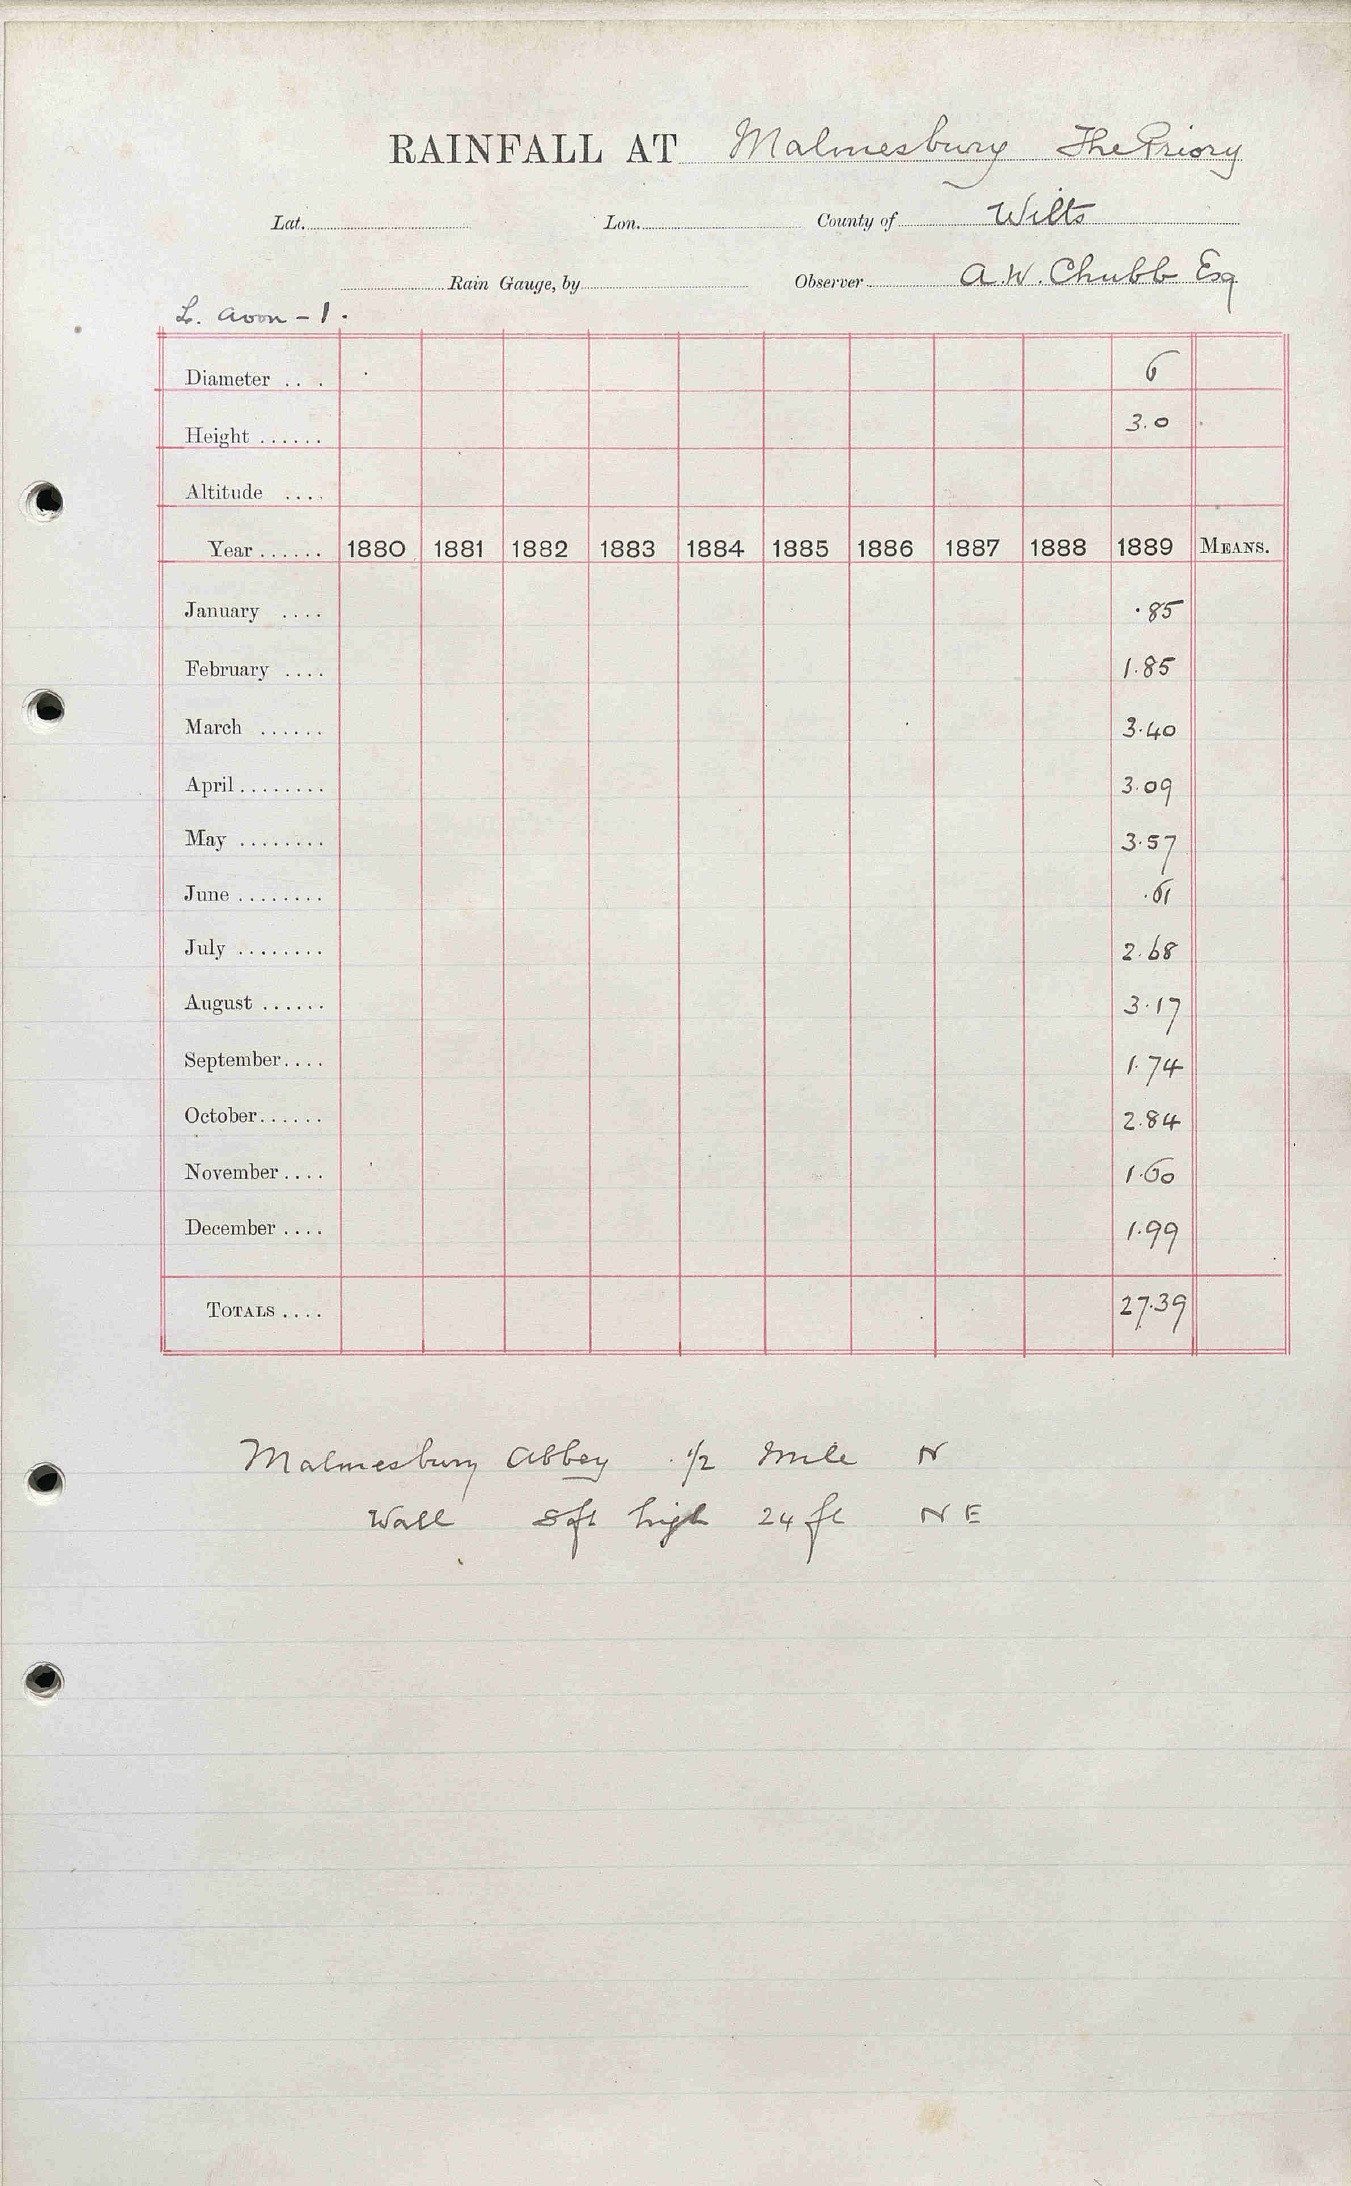 RAINFALL AT Malmesbury The Priory
Lat. Lon. County of Wilts
Rain Gauge, by Observer A.W. Chubb Esq
L. Avon - 1.
Diameter .. . 6
Height ...... 3.0
Altitude ....
Year ...... 1880 1881 1882 1883 1884 1885 1886 1887 1888 1889 MEANS.
January .... .85
February .... 1.85
March ...... 3.40
April ........ 3.09
May ........ 3.57
June ........ .61
July ........ 2.68
August ...... 3.17
September.... 1.74
October...... 2.84
November.... 1.60
December .... 1.99
TOTALS .... 27.39
Malmesbury Abbey 1/2 Mile N
Wall 8ft high 24 ft N E